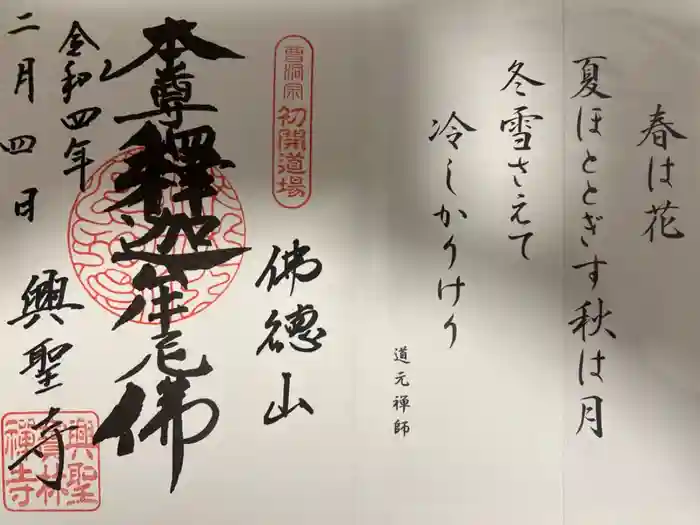 春は花
夏ほととぎす秋は月
冬雪さえて
冷しかりけり
道元禅師
曹洞宗
初開道場
佛德山
本尊釋迦牟尼佛
令和四年
二月四日
興聖寺
興聖
寶林
禅寺